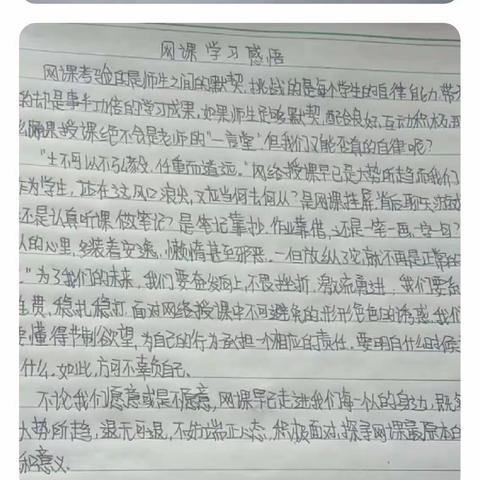 网课学习感悟
网课考验的是师生之间的默契,挑战的是每个学生的自律能力,带
的却是事半功倍的学习成果,如果师生足够默契,配合良好,互动积极,那
么网课授课绝不会是老师的"一言堂"但我们又能否真的自律呢?
"士不可以不弘毅,任重而道远。"网络授课早已是大势所趋而我们
作为学生,站在这风口浪尖,又应当何去何从?是网课挂屏,背后聊天,游戏
还是认真听课,做笔记?是笔记靠抄,作业靠借,还是一笔一画,一字一句?
人的心里,多装着安逸,懒惰甚至邪恶,一但放纵了它,就不再是正常的
"为了我们的未来,我们要奋发向上,不畏挫折,激流勇进,我们要
生费,稳扎稳打,面对网络授课中不可避免的形形色色的诱惑,我们
要懂得节制欲望,为自己的行为承担一个相应的责任。要明白什么时候
什么。如此,方可不辜负自己、
不论我们愿意或是不愿意,网课早已走进我们每一个人的身边,既
大势所趋,退无可退,不妨端正心态,积极面对,探寻网课最原本的
和意义.